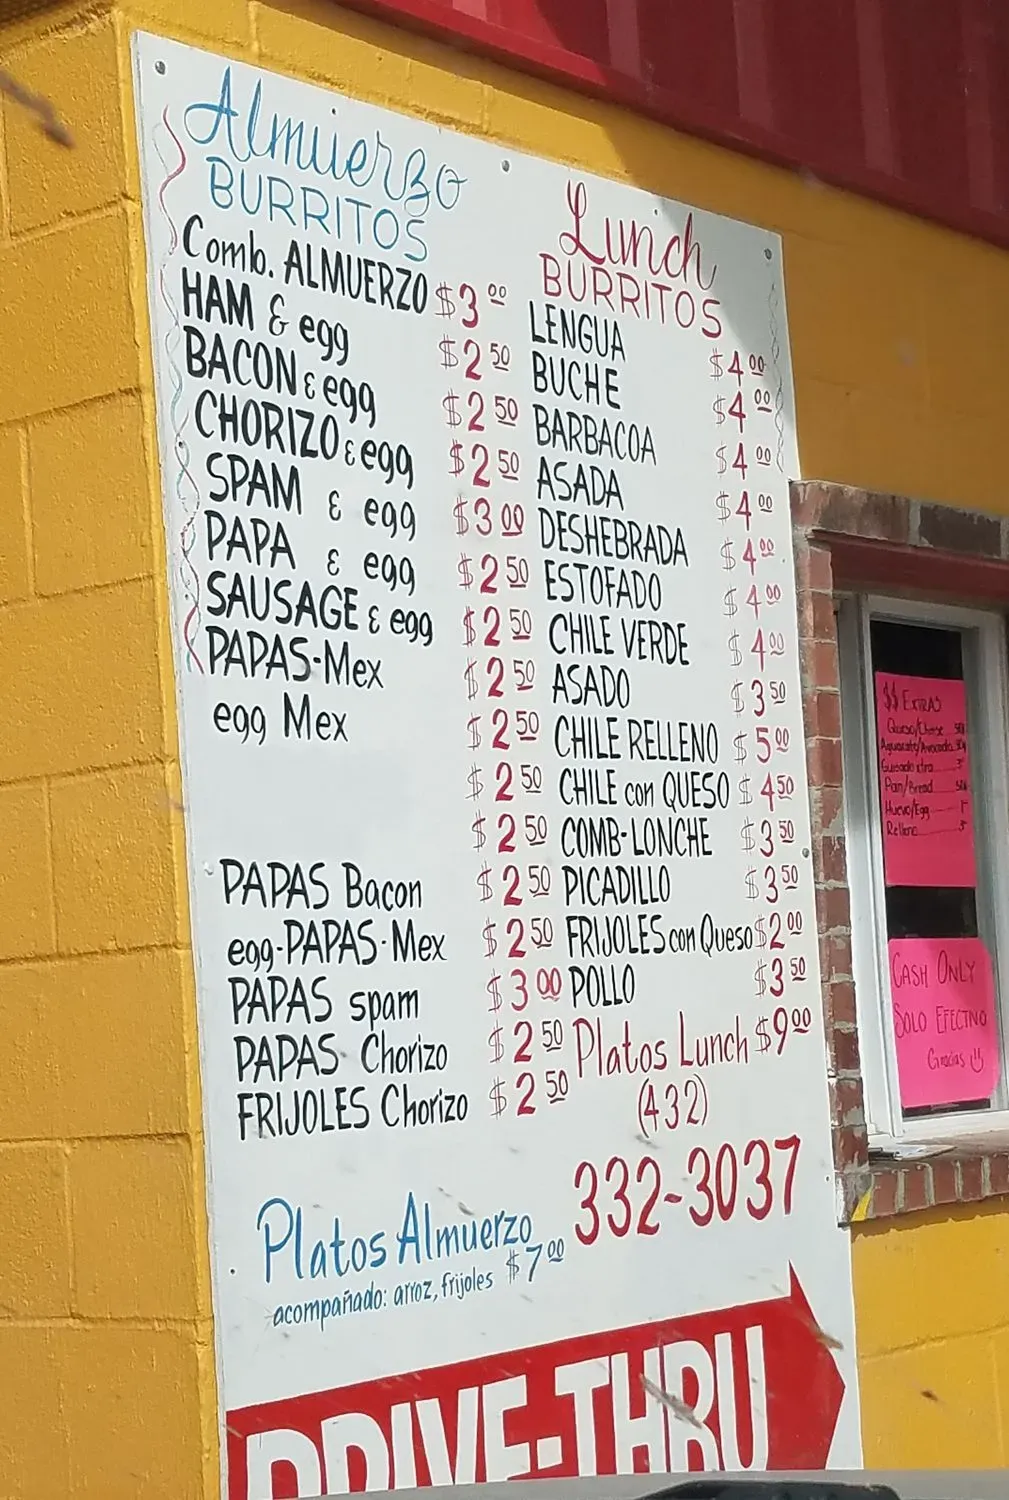 Almuerzo
BURRITOS
Comb. ALMUERZO $3.00
HAM & egg $2.50
BACON & egg $2.50
CHORIZO & egg $2.50
SPAM & egg $3.00
PAPA & egg $2.50
SAUSAGE & egg $2.50
PAPAS-Mex $2.50
egg Mex $2.50
$2.50
$2.50
PAPAS Bacon $2.50
egg-PAPAS-Mex $2.50
PAPAS spam $3.00
PAPAS Chorizo $2.50
FRIJOLES Chorizo $2.50
Platos Almuerzo $7.00
acompañado: arroz, frijoles
Lunch
BURRITOS
LENGUA $4.00
BUCHE $4.00
BARBACOA $4.00
ASADA $4.00
DESHEBRADA $4.00
ESTOFADO $4.00
CHILE VERDE $4.00
ASADO $3.50
CHILE RELLENO $5.00
CHILE con QUESO $4.50
COMB-LONCHE $3.50
PICADILLO $3.50
FRIJOLES con Queso $2.00
POLLO $3.50
Platos Lunch $9.00
(432)
332-3037
DRIVE-THRU
$$ EXTRAS
Queso/Cheese
Aguacate/Avocado
Guisado xtra
Pan/Bread
Huevo/Egg
Relleno
CASH ONLY
SOLO EFECTIVO
Gracias